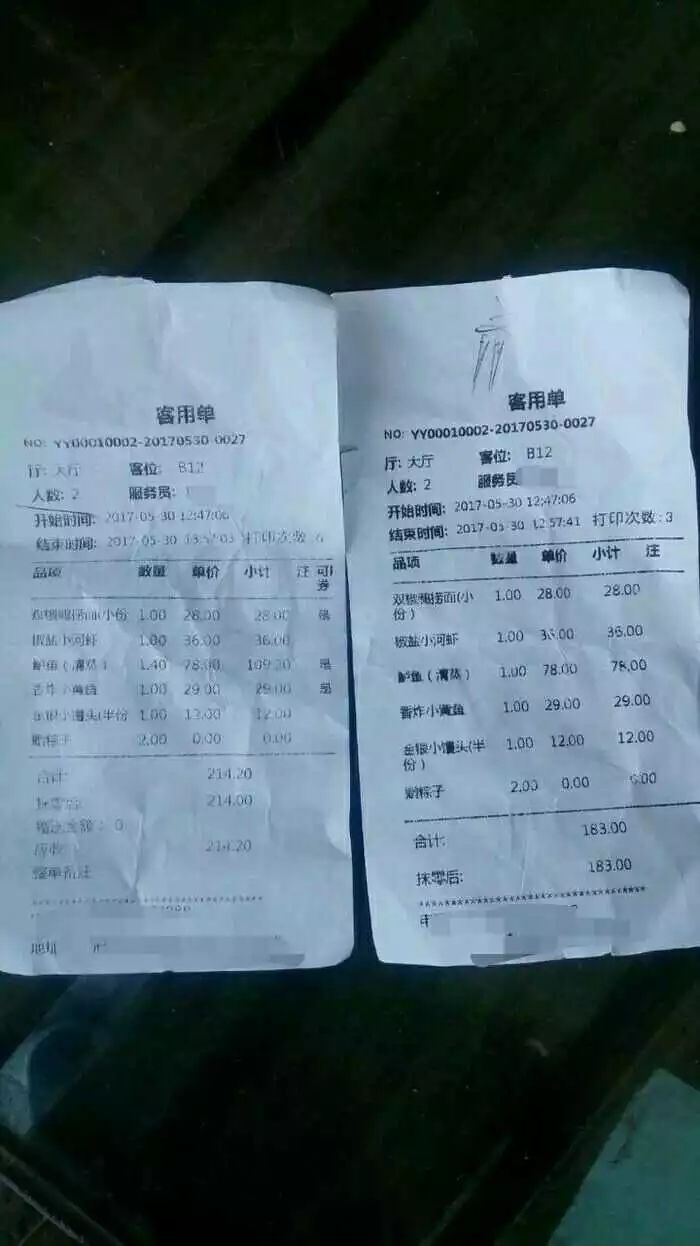 客用单
NO: YY00010002-20170530-0027
厅: 大厅 客位: B12
人数: 2 服务员:
开始时间: 2017-05-30 12:47:06
结束时间: 2017-05-30 13:57:03 打印次数: 6
品项 数量 单价 小计 注 可
券
双椒 捞面(小份 1.00 28.00 28.00 是
椒盐小河虾 1.00 36.00 36.00
鲈鱼（清蒸） 1.40 78.00 109.20 是
香炸小黄鱼 1.00 29.00 29.00 是
金银小馒头(半份 1.00 12.00 12.00
粽子 2.00 0.00 0.00
合计: 214.20
抹零后: 214.00
赠送金额: 0
应收: 214.20
整单备注
地址
客用单
NO: YY00010002-20170530-0027
厅: 大厅 客位: B12
人数: 2 服务员
开始时间: 2017-05-30 12:47:06
结束时间: 2017-05-30 12:57:41 打印次数: 3
品项 数量 单价 小计 注
双椒 捞面(小
份） 1.00 28.00 28.00
椒盐小河虾 1.00 36.00 36.00
鲈鱼（清蒸） 1.00 78.00 78.00
香炸小黄鱼 1.00 29.00 29.00
金银小馒头(半
份） 1.00 12.00 12.00
粽子 2.00 0.00 0.00
合计: 183.00
抹零后: 183.00